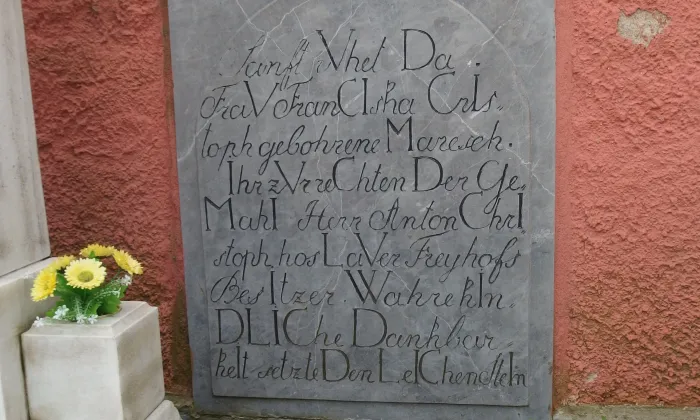 sanft rVhet Da.
FraV FranCIska CrIs-
toph gebohrene Maresch.
Ihr zVr reChten Der Ge-
MahI Herr Anton ChrI
stoph, hos LaVer Freyhofs
BesItzer. WahrekIn-
DLIChe Dankbar
keIt setzte Den LeIChensteIn